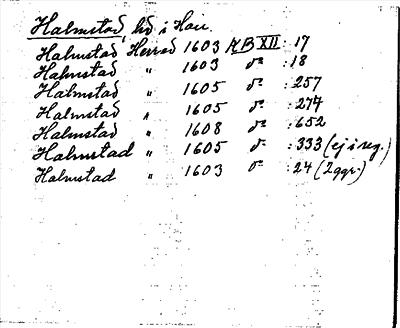 Halmstad, hd i Hall.
Halmstad Herrad 1603 KB XII : 17
Halmstad " 1603 do : 18
Halmstad " 1605 do : 257
Halmstad " 1605 do : 274
Halmstad " 1608 do : 652
Halmstad " 1605 do : 333 (ej i reg.)
Halmstad " 1603 do : 24 (2 ggr.)